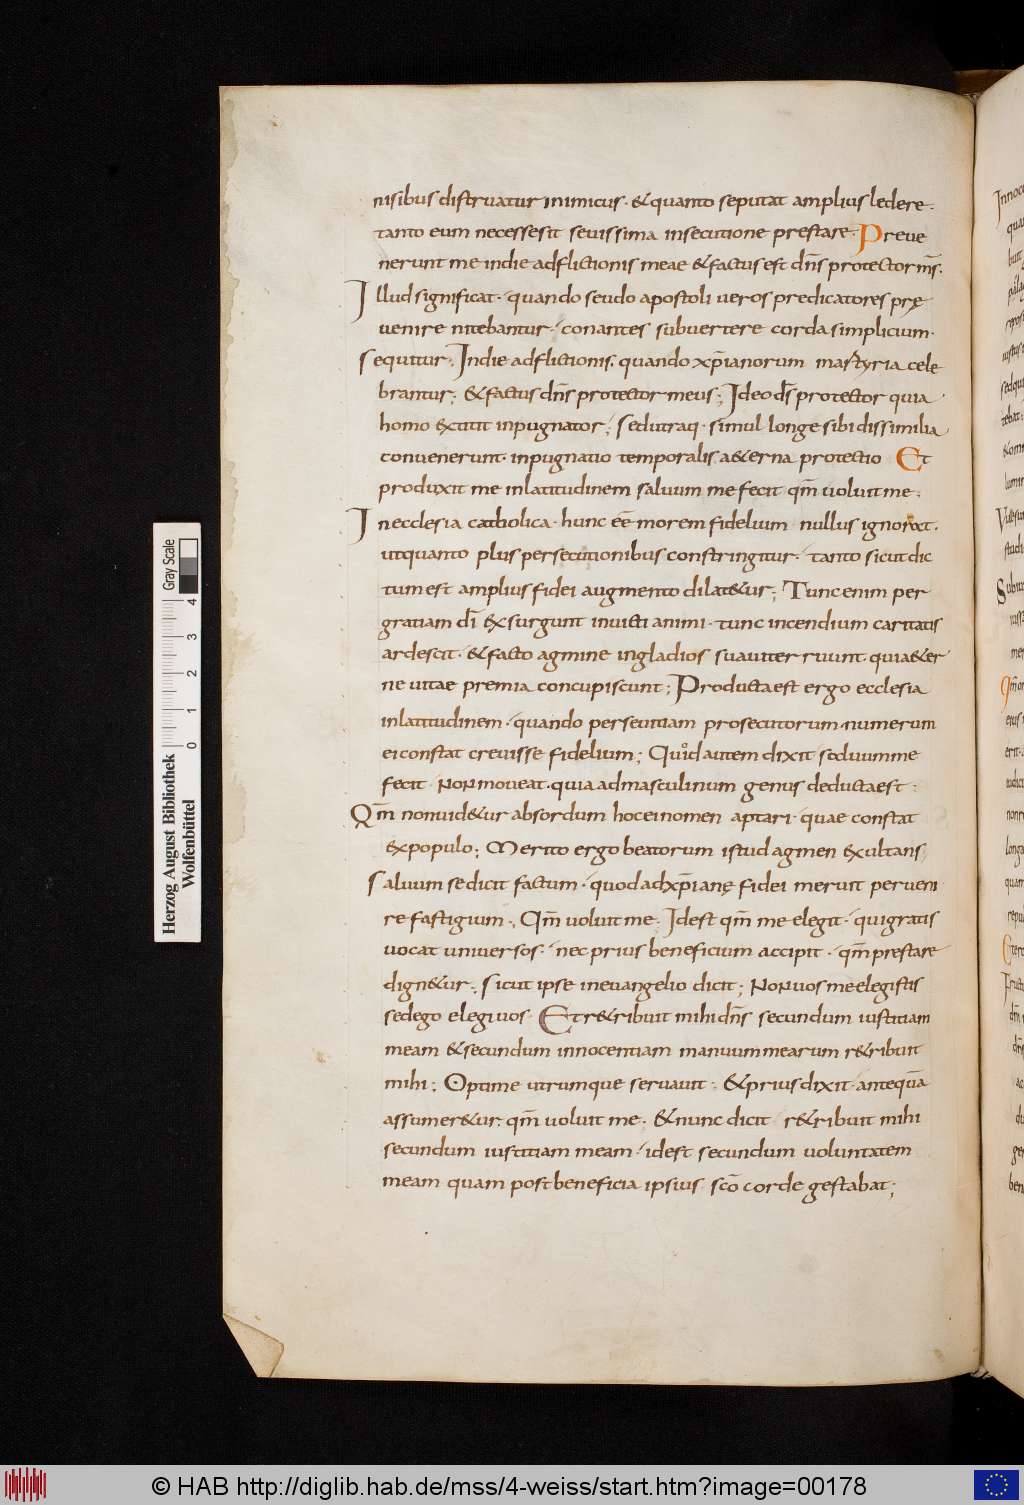 nisibus distruatur inimicus · & quanto seputat amplius ledere ·
tanto eum necessesit seuissima insecutione prestare · Preue
nerunt me indie adflictionis meae & factus est dn̄s protector m̄s ·
Illud significat · quando seudo apostoli ueros predicatores prę
uenire nitebantur · conantes subuertere corda simplicium ·
sequitur · Indie adflictionis · quando xp̄ianorum martyria cele
brantur ; & factus dn̄s protector meus ; Ideo ds̄ protector quia
homo extitit inpugnator ; sedutraq · simul longe sibi dissimilia
conuenerunt · inpugnatio temporalis a&erna protectio Et
produxit me inlatitudinem saluum me fecit qm̄ uoluit me ·
Inecclesia catholica · hunc eē morem fidelium nullus ignorat ·
utquanto plus persecutionibus constringitur · tanto sicut dic
tum est amplius fidei augmento dilat&ur ; Tunc enim per
gratiam dī exsurgunt inuicti animi · tunc incendium caritatis
ardescit · & facto agmine ingladios suauiter ruunt · quia&er
ne uitae premia concupiscunt ; Producta est ergo ecclesia
inlatitudinem · quando persentiam prosecutorum · numerum
ei constat creuisse fidelium ; Quod autem dixit saluumme
fecit · Non moueat · quia admasculinum genus deducta est ·
Qm̄ nonuid&ur absordum hoc ei nomen aptari · quae constat
expopulo ; Merito ergo beatorum istud agmen exultans
saluum se dicit factum · quod adxp̄ianę fidei meruit perueni
re fastigium · Qm̄ uoluit me · Idest qm̄ me elegit · qui gratis
uocat uniuersos · nec prius beneficium accipit · qm̄ prestare
dign&ur ; sicut ipse ineuangelio dicit ; Non uos me elegistis
sedego elegi uos · Et r&ribuit mihi dn̄s secundum iustitiam
meam & secundum innocentiam manuum mearum r&ribuit
mihi ; Optime utrumque seruauit · & prius dixit · antequā
assumer&ur · qm̄ uoluit me ; & nunc dicit r&ribuit mihi
secundum iustitiam meam · idest secundum uoluntatem
meam quam post beneficia ipsius · scō corde gestabat ;
Herzog August Bibliothek
Wolfenbüttel
Gray Scale
0 1 2 3 4
© HAB http://diglib.hab.de/mss/4-weiss/start.htm?image=00178